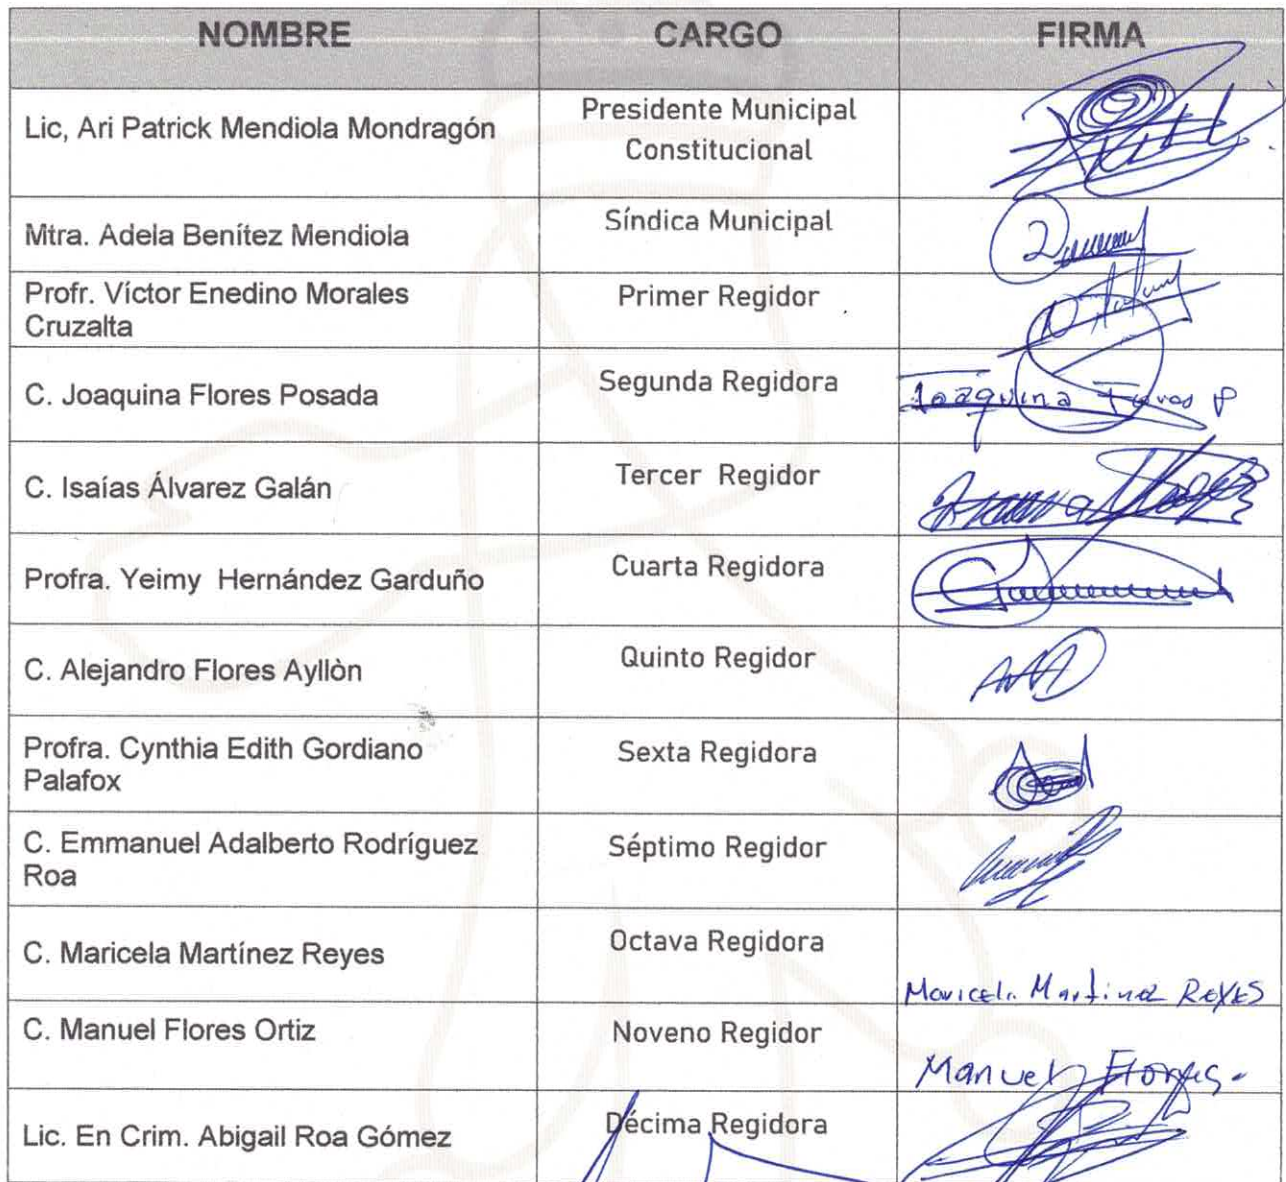 NOMBRE CARGO FIRMA
Lic, Ari Patrick Mendiola Mondragón Presidente Municipal
Constitucional
Mtra. Adela Benítez Mendiola Síndica Municipal
Profr. Víctor Enedino Morales Primer Regidor
Cruzalta
C. Joaquina Flores Posada Segunda Regidora Joaquina Flores P
C. Isaías Álvarez Galán Tercer Regidor
Profra. Yeimy Hernández Garduño Cuarta Regidora
C. Alejandro Flores Ayllòn Quinto Regidor
Profra. Cynthia Edith Gordiano Sexta Regidora
Palafox
C. Emmanuel Adalberto Rodríguez Séptimo Regidor
Roa
C. Maricela Martínez Reyes Octava Regidora
Maricela Martinez REYES
C. Manuel Flores Ortiz Noveno Regidor
Manuel Flores.
Lic. En Crim. Abigail Roa Gómez Décima Regidora